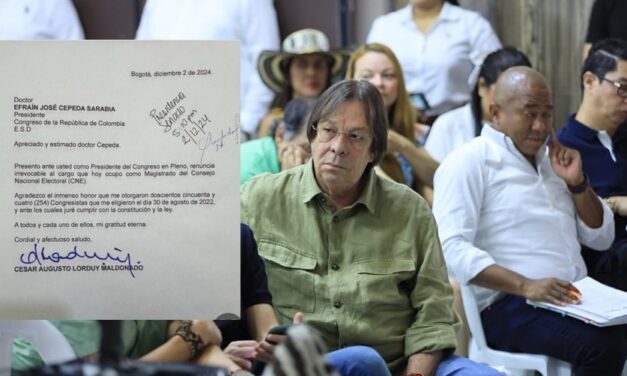 Bogotá, diciembre 2 de 2024.
Doctor
EFRAÍN JOSÉ CEPEDA SARABIA
Presidente
Congreso de la República de Colombia
E.S.D
Presidencia
Senado
5:10 pm
2/12/24
Apreciado y estimado doctor Cepeda.
Presento ante usted como Presidente del Congreso en Pleno, renuncia
irrevocable al cargo que hoy ocupo como Magistrado del Consejo
Nacional Electoral (CNE).
Agradezco el inmenso honor que me otorgaron doscientos cincuenta y
cuatro (254) Congresistas que me eligieron el día 30 de agosto de 2022,
y ante los cuales juré cumplir con la constitución y la ley.
A todos y cada uno de ellos, mi gratitud eterna.
Cordial y afectuoso saludo,
CESAR AUGUSTO LORDUY MALDONADO